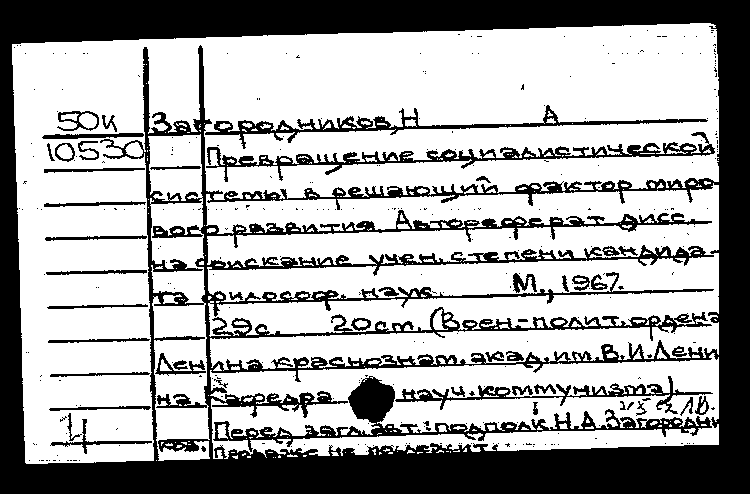 50к Загородников, Н А
10530 Превращение социалистической
системы в решающий фактор миро-
вого развития. Автореферат дисс.
на соискание учен. степени кандида-
та философ. наук. М., 1967.
29с. 20см. (Воен.-полит. ордена
Ленина краснознам. акад. им. В.И.Лени
на. Кафедра науч. коммунизма).
4 Перед загл. авт.: подполк. Н.А.Загородни
Продаже не подлежит.